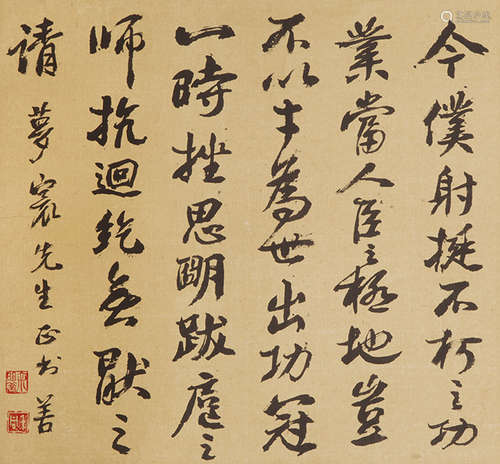 今僕射挺不朽之功
業當人臣之極地豈
不以才為世出功冠
一時挫思明跋扈之
師抗迴紇無厭之
請 夢寰先生正书 善